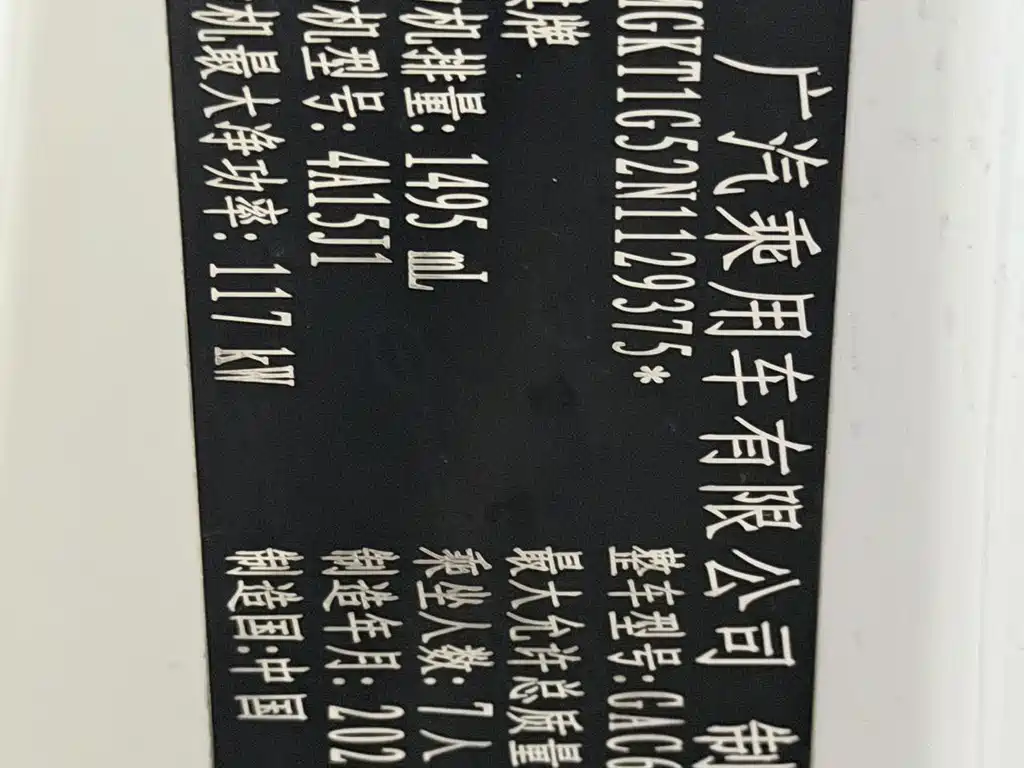 广汽乘用车有限公司 制
MGKT1G52N1129375*
整车型号:GAC6
牌
最大允许总质量
机排量: 1495 mL
乘坐人数: 7人
机型号: 4A15J1
制造年月: 202
机最大净功率: 117 kW
制造国:中国